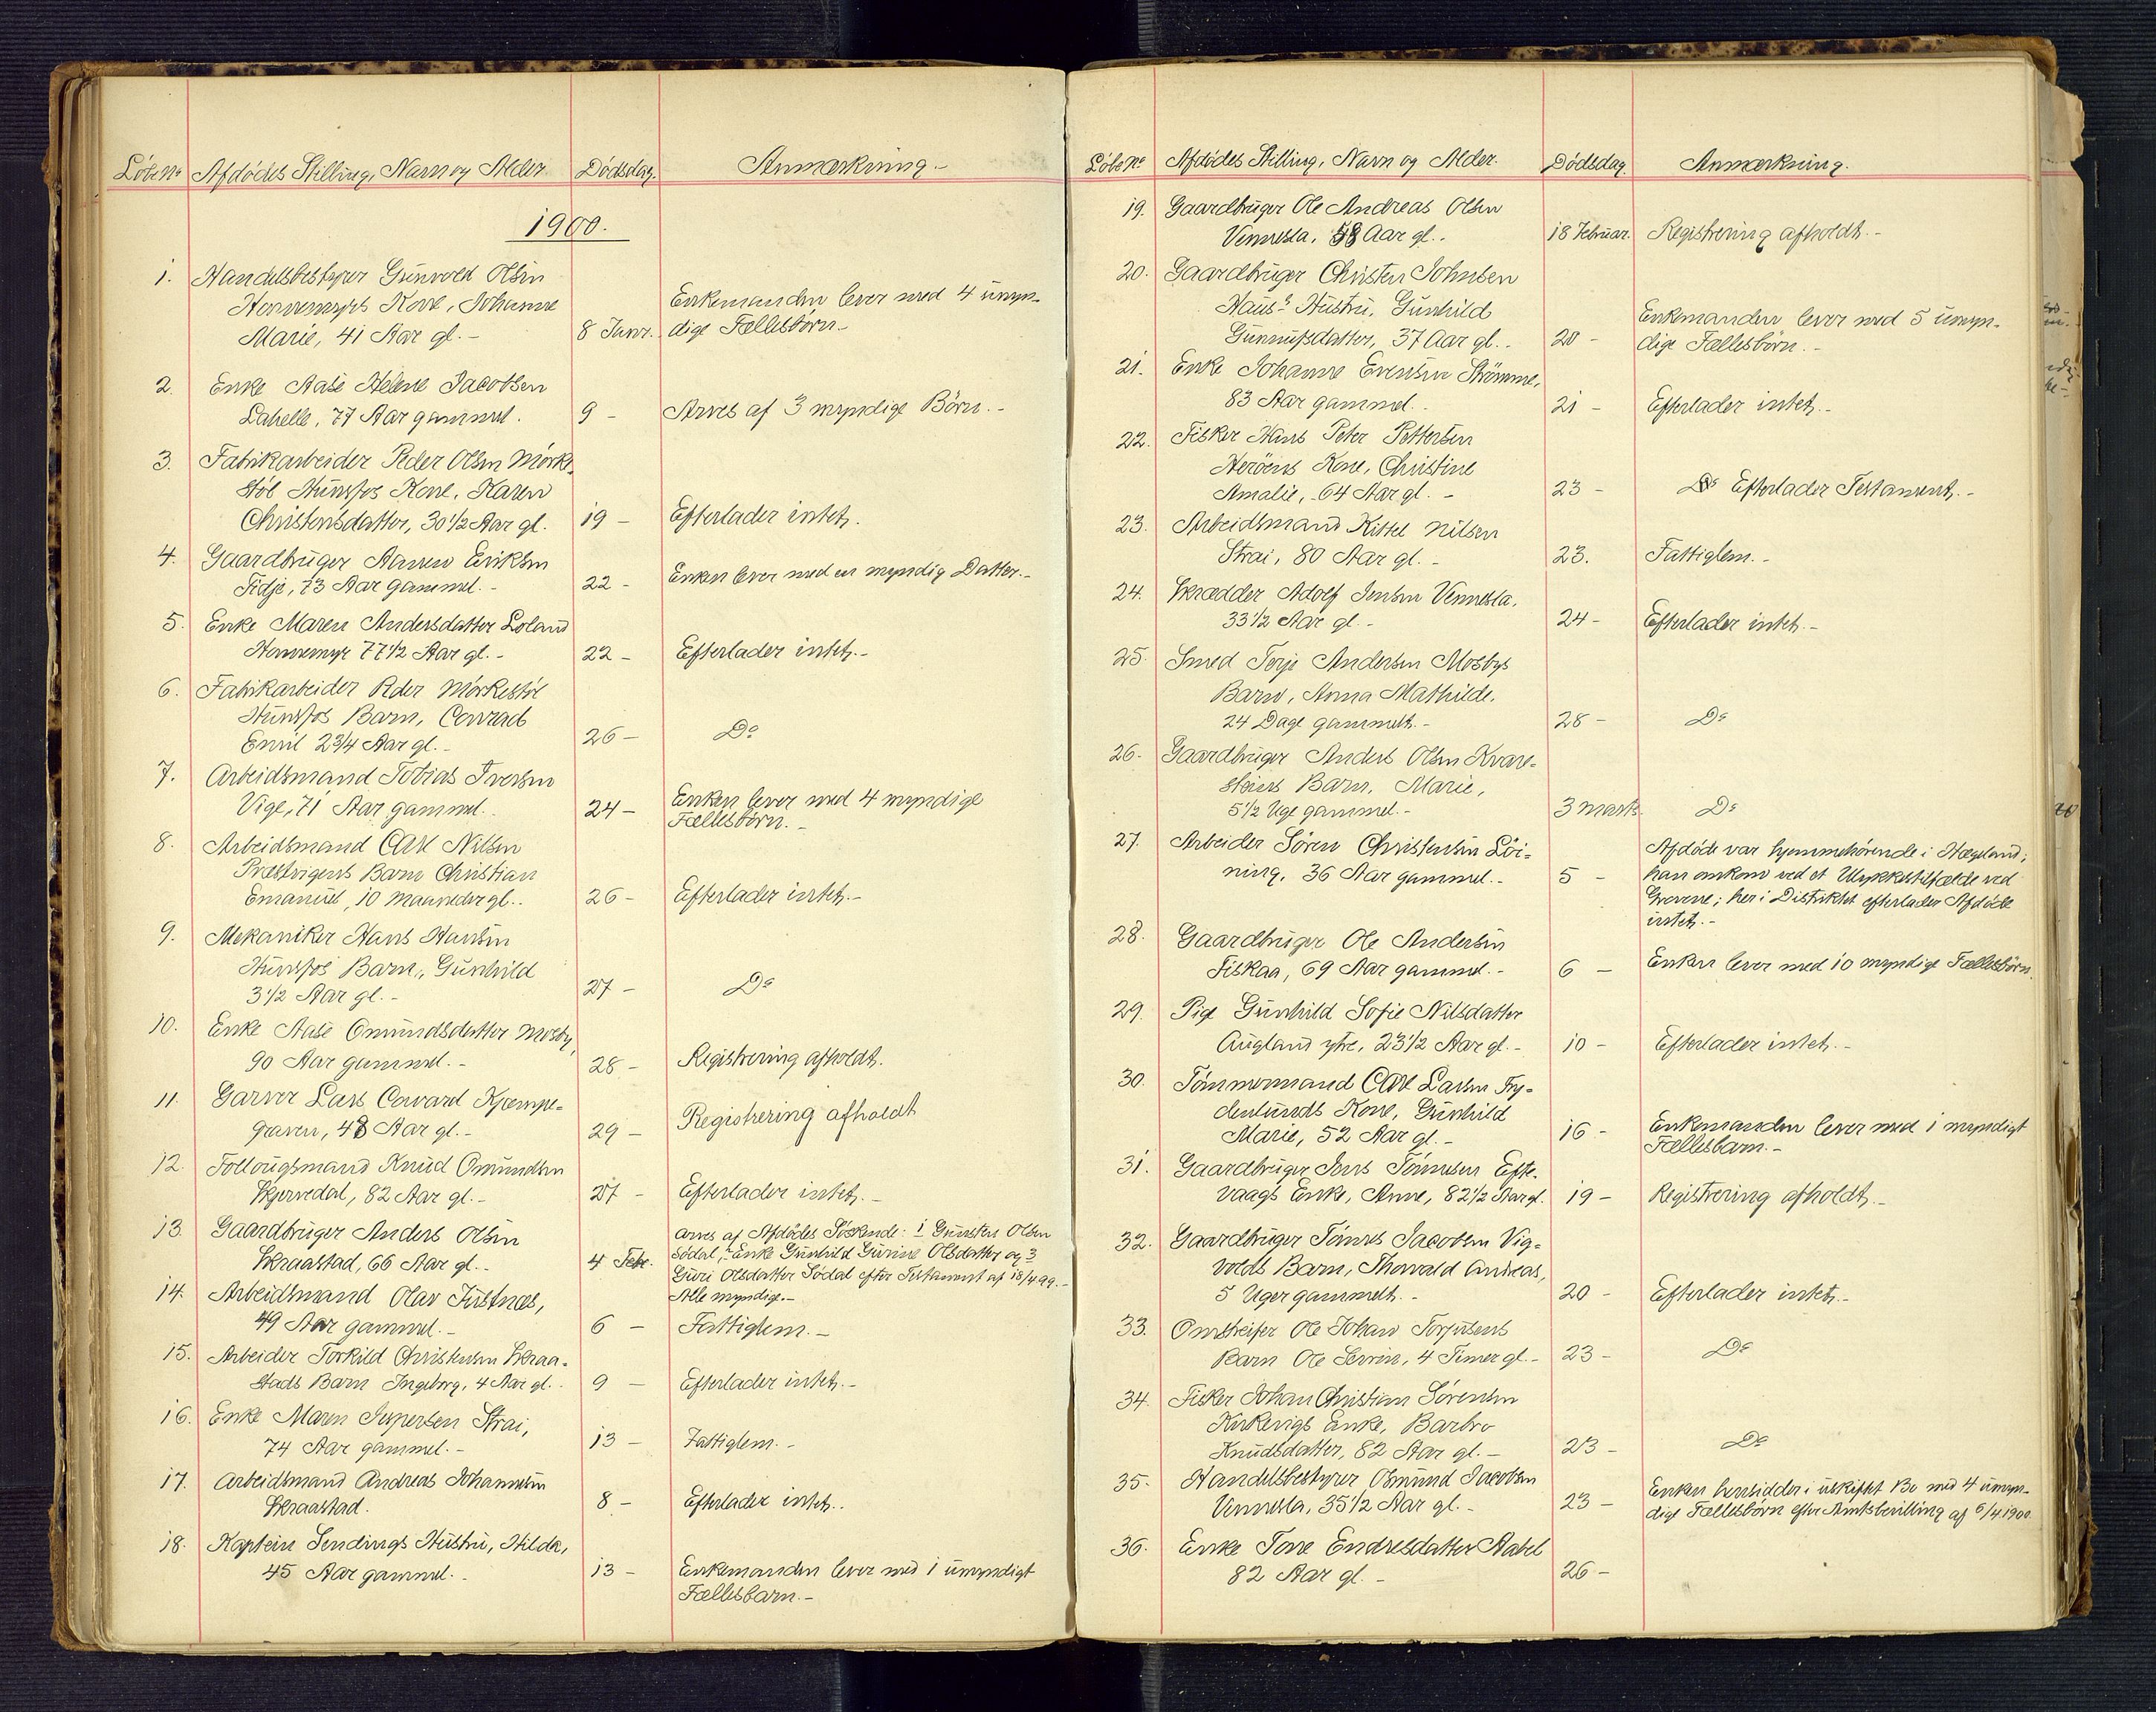 Löbe No Afdödes Stilling, Navn og Alder. Dödsdag. Anmærkning.-
1900.
1. Handelsbestyrer Gunvald Olsen
Honnemyrs Kone, Johanne Enkemanden lever med 4 umyn-
Marie, 41 Aar gl.- 8 Janr. dige Fællesbörn.-
2. Enke Aase Helene Jacobsen
Lahelle, 77 Aar gammel. 9 - Arves af 3 myndige Börn.-
3. Fabrikarbeider Peder Olsen Mörke-
stöl Hunsfos Kone, Karen
Christensdatter, 30 1/2 Aar gl. 19 - Efterlader intet.
4. Gaardbruger Aanen Eriksen
Tidje, 73 Aar gammel.- 22 - Enken lever med en myndig Datter.-
5. Enke Maren Andersdatter Loland
Honnemyr 77 1/2 Aar gl.- 22 - Efterlader intet.-
6. Fabrikarbeider Peder Mörkestöl
Hunsfos Barn, Conrad
Emil 2 3/4 Aar gl.- 26 - Do
7. Arbeidsmand Tobias Iversen
Vige, 71 Aar gammel. 24 - Enken lever med 4 myndige
Fællesbörn.-
8. Arbeidsmand Carl Nilsen
Præstvigens Barn Christian
Emanuel, 10 Maaneder gl.. 26 - Efterlader intet.-
9. Mekaniker Hans Hansen
Hunsfos Barn, Gunhild
3 1/2 Aar gl.- 27 - Do
10. Enke Aase Omundsdatter Mosby,
90 Aar gammel.- 28 - Registrering afholdt.
11. Garver Lars Coward Kjempe-
graven, 48 Aar gl.- 29 - Registrering afholdt
12. Follougsmand Knud Omundsen
Skjervedal, 82 Aar gl.- 27 - Efterlader intet.-
13. Gaardbruger Anders Olsen
Skraastad, 66 Aar gl.- 4 Febr. Arves af Afdödes Söskende: 1 Gunsten Olsen
Södal, 2 Enke Gunhild Gurine Olsdatter og 3
Guri Olsdatter Södal efter Testament af 18/4 99.-
Alle myndige.-
14. Arbeidsmand Olav Justnæs,
49 Aar gammel.- 6 - Fattiglem.-
15. Arbeider Torkild Christensen Skraa-
stads Barn Ingeborg, 4 Aar gl.. 9 - Efterlader intet.-
16. Enke Maren Jeppersen Strai,
74 Aar gammel.- 13 - Fattiglem.-
17. Arbeidsmand Andreas Johannesen
Skraastad. 8 - Efterlader intet..
18. Kaptein Sendings Hustru, Hilda,
45 Aar gammel.- 13 - Enkemanden lever med 1 umyndigt
Fællesbarn.-
Löbe No Afdödes Stilling, Navn og Alder. Dödsdag. Anmærkning.
19. Gaardbruger Ole Andreas Olsen
Vennesla, 48 Aar gl.. 18 Februar. Registrering afholdt.-
20. Gaardbruger Christen Johnsen
Haus's Hustru, Gunhild Enkemanden lever med 5 umyn-
Gunnufsdatter, 37 Aar gl.. 20 - dige Fællesbörn.-
21. Enke Johanne Evensen Strömme,
83 Aar gammel.. 21 - Efterlader intet.-
22. Fisker Hans Peter Pettersen
Heröens Kone, Christine
Amalie, 64 Aar gl.- 23 - Efterlader Testament.-
23. Arbeidsmand Kittel Nilsen
Strai, 80 Aar gl.- 23. Fattiglem.-
24. Skrædder Adolf Jensen Vennesla,
33 1/2 Aar gl.- 24 - Efterlader intet.-
25. Smed Terje Andersen Mosbys
Barn, Anna Mathilde,
24 Dage gammelt.- 28 - Do
26. Gaardbruger Anders Olsen Kvare-
steins Barn, Marie,
5 1/2 Uge gammel.- 3 Marts. Do
27. Arbeider Sören Christensen Löi-
ning, 36 Aar gammel.- 5 - Afdöde var hjemmehörende i Hægeland;
han omkom ved et Ulykkestilfælde ved
Grovene; her i Distriktet efterlader Afdöde
intet.-
28. Gaardbruger Ole Andersen
Fiskaa, 69 Aar gammel.- 6 - Enken lever med 10 myndige Fællesbörn.
29. Pige Gunhild Sofie Nilsdatter
Augland ytre, 23 1/2 Aar gl.- 10 - Efterlader intet.-
30. Tömmermand Carl Larsen Fry-
denlunds Kone, Gunhild
Marie, 52 Aar gl.- 16 - Enkemanden lever med 1 myndigt
Fællesbarn.-
31. Gaardbruger Jens Tönnesen Efte-
vaags Enke, Anne, 82 1/2 Aar gl. 19 - Registrering afholdt.-
32. Gaardbruger Tönnes Jacobsen Vig-
volds Barn, Thorvald Andreas,
5 Uger gammelt.- 20 - Efterlader intet.-
33. Omstreifer Ole Johan Torjusens
Barn Ole Severin, 4 Timer gl.- 23 - Do
34. Fisker Johan Christian Sörensen
Kirkevigs Enke, Barbro
Knudsdatter, 82 Aar gl.- 23 - Do
35. Handelsbestyrer Osmund Jacobsen
Vennesla, 35 1/2 Aar gl.- 23 - Enken hensidder i uskiftet Bo med 4 umyn-
dige Fællesbörn efter Amtsbevilling af 6/4 1900
36. Enke Tone Endresdatter Aabel
82 Aar gl.- 26 -